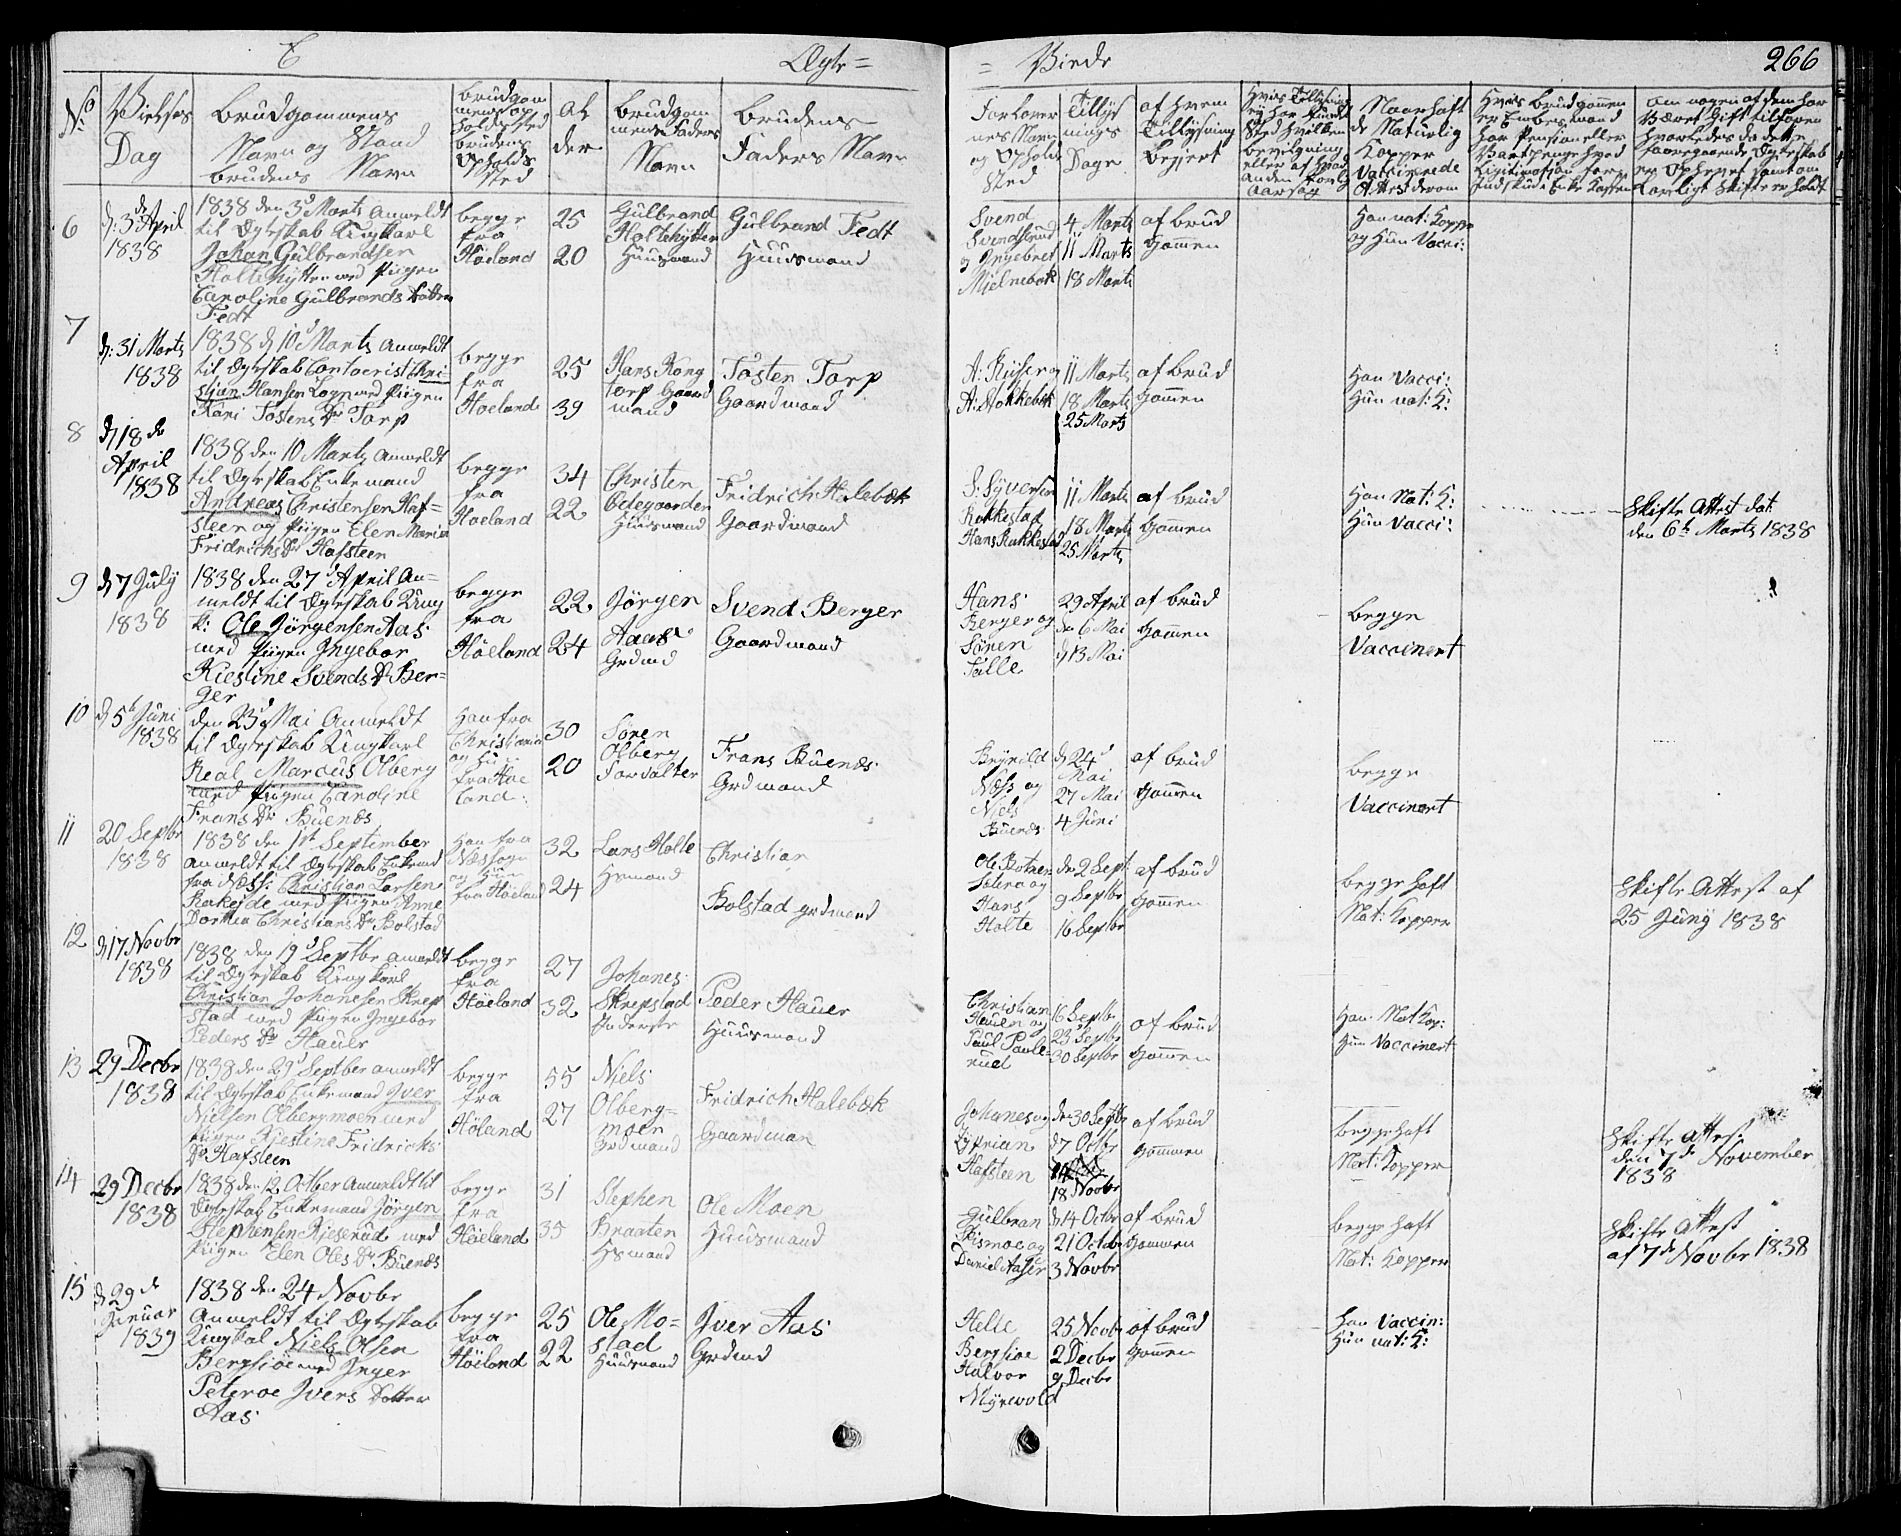 E
Ægte =
= Viede
266
No
Vielses
Dag
Brudgommens
Navn og Stand
Brudens Navn
Brudgom
mens op
holdssted
brudens
Opholds
sted
Al
der
Brudgom
mens Faders
Navn
Brudens
Faders Navn
Forlover
nes Navn
og Opholds
Sted
Tillys
nings
Dage
af hvem
Tillysning
begjert
Naar haft
de Naturlig
Kopper
Vaccinerede
Attest derom
6
d: 3de April
1838
1838 den 3d Marts Anmeldt
til Ægteskab Ungkarl
Johan Gulbrandsen
Holtehytten med Pigen
Caroline Gulbrands Datter
Fedt
begge
fra
Höeland
25
20
Gulbrand
Holtehytten
Huusmand
Gulbrand Fedt
Huusmand
Svend
Svendsrud
og Ingebret
Mielnebæk
4 Marts
11 Marts
18 Marts
af brud
gommen
Han nat: Kopper
og Hun Vacci:
7
d: 31 Marts
1838
1838 d 10d Marts Anmeldt
til Ægteskab Contoerist Chri-
stian Hansen med Pigen
Kari Tostens Dr Torp
begge
fra
Hoeland
25
39
Hans Kong
torp Gaard
mand
Tosten Torp
Gaardmand
A: Stokkebek
11 Marts
18 Marts
25 Marts
af brud
gommen
Han Vacci:
Hun nat: K:
8
d 18de
April
1838
1838 den 10 Marts Anmeldt
til Ægteskab Enkemand
Andreas Christensen Haf=
steen og Pigen Elen Maria
Fridrichs Dr Hafsteen
begge
fra
Hoeland
34
22
Christen
Ödegaarden
Huusmand
Fridrich Halebæk
Gaardmand
S: Syversen
Rakkestad
Hans Rakkestad
11 Marts
18 Marts
25 Marts
af brud
gommen
Han Nat: K:
Hun Vacci:
Skifte Attest dat:
den 6te Marts 1838
9
d 7 July
1838
1838 den 27d April An=
meldt til Ægteskab Ung
k: Ole Jörgensen Aas
med Pigen Ingebor
Kiestine Svends Dr Ber=
ger
begge
fra
Höeland
22
24
Jörgen
Aaas
Grdmd
Svend Berger
Gaardmand
Hans
Berger og
Sören
Tolle
29 April
den 6 Mai
d 13 Mai
af brud
gommen
begge
Vaccinert
10
d 5te Juni
1838
den 23d Mai Anmeldt
til Ægteskab Ungkarl
Real Marcus Olberg
med Pigen Caroline
Frans Dr Buenes
Han fra
Christiania
og hu
fra Höe
land:
30
20
Sören
Olberg
Frans Buenes
Grdmand
Næss og
Niels
Buenes
d 24d
Mai
27 Mai
4 Juni
af brud
gommen
begge
Vaccinert
11
20 Septbr
1838
1838 den 1st September
Anmeldt til Ægteskab Enkemd
fra Næss: Christian Larsen
med Pigen Anne
Dorthea Christians Dr Bolstad
Han fra
Næs sogn
og Hun
fra Höeland
32
24
Lars Holte
Hsmand
Christian
Bolstad grdmand
Ole Botner
og
Hans
Holte
den 2 Sept:
9 Septbr
16 Septbr
af brud
gommen
begge haft
Nat: Kopper
Skifte Attest af
25 Juny 1838
12
d 17 Novbr
1838
1838 den 19d Septbr anmeldt
til Ægteskab Ungkarl
Christian Johanesen Skrep
stad med Pigen Ingebor
Peders Dr Hauer
begge
fra
Höeland
27
32
Johanes
Skrepstad
Inderste
Peder Hauer
Huusmand
Christian
Hauer og
Paul Paule-
rud
16 Septbr
23 Septbr
30 Septbr
af brud
gommen
Han Nat Kop:
Hun Vaccinert
13
29 Decbr
1838
1838 den 29d Septber anmeldt
til Ægteskab Enkemand Iver
Nielsen Olbergmoen med
Pigen Kjestine Fridrichs
Dr Hafsteen
begge
fra
Höland
55
27
Niels
Olberg=
moen
Grdmand
Fridrich Halebæk
Gaardman
Johanes og
Cyprian
Hafsteen
den 30 Septbr
d 7 Octbr
18 Novbr
af brud
gommen
begge haft
Nat: Kopper
Skifte Attest
den 7de November
1838
14
29 Decbr
1838
1838 den 12 Octber Anmeldt til
Ægteskab Enkemand Jörgen
Stephensen Kjeserud med
Pigen Elen Oles Dr Buenes
begge
fra
Höeland
31
35
Stephen
Braaten
Hsmand
Ole Moen
Huusmand
Gulbran
og
Daniel
d 14 Octbr
21 Octbr
3 Novbr
af brud
gommen
begge haft
Nat: Kopper
Skifte Attest
af 7de Novbr 1838
15
d 29de
Januar
1839
1838 den 24 Novbr
Anmeldt til Ægteskab
Ungkal Niels Olsen
Bergsiöe med Inger
Peteroe Ivers Datter
Aas
begge
fra
Höeland
25
22
Ole Mo=
stad
Huusmand
Iver Aas
Grdmd
Helle
Bergsioe
Halvor
Myrevold
25 Novbr
2 Decbr
9 Decbr
af brud
gommen
Han Vaccin:
Hun nat: K: